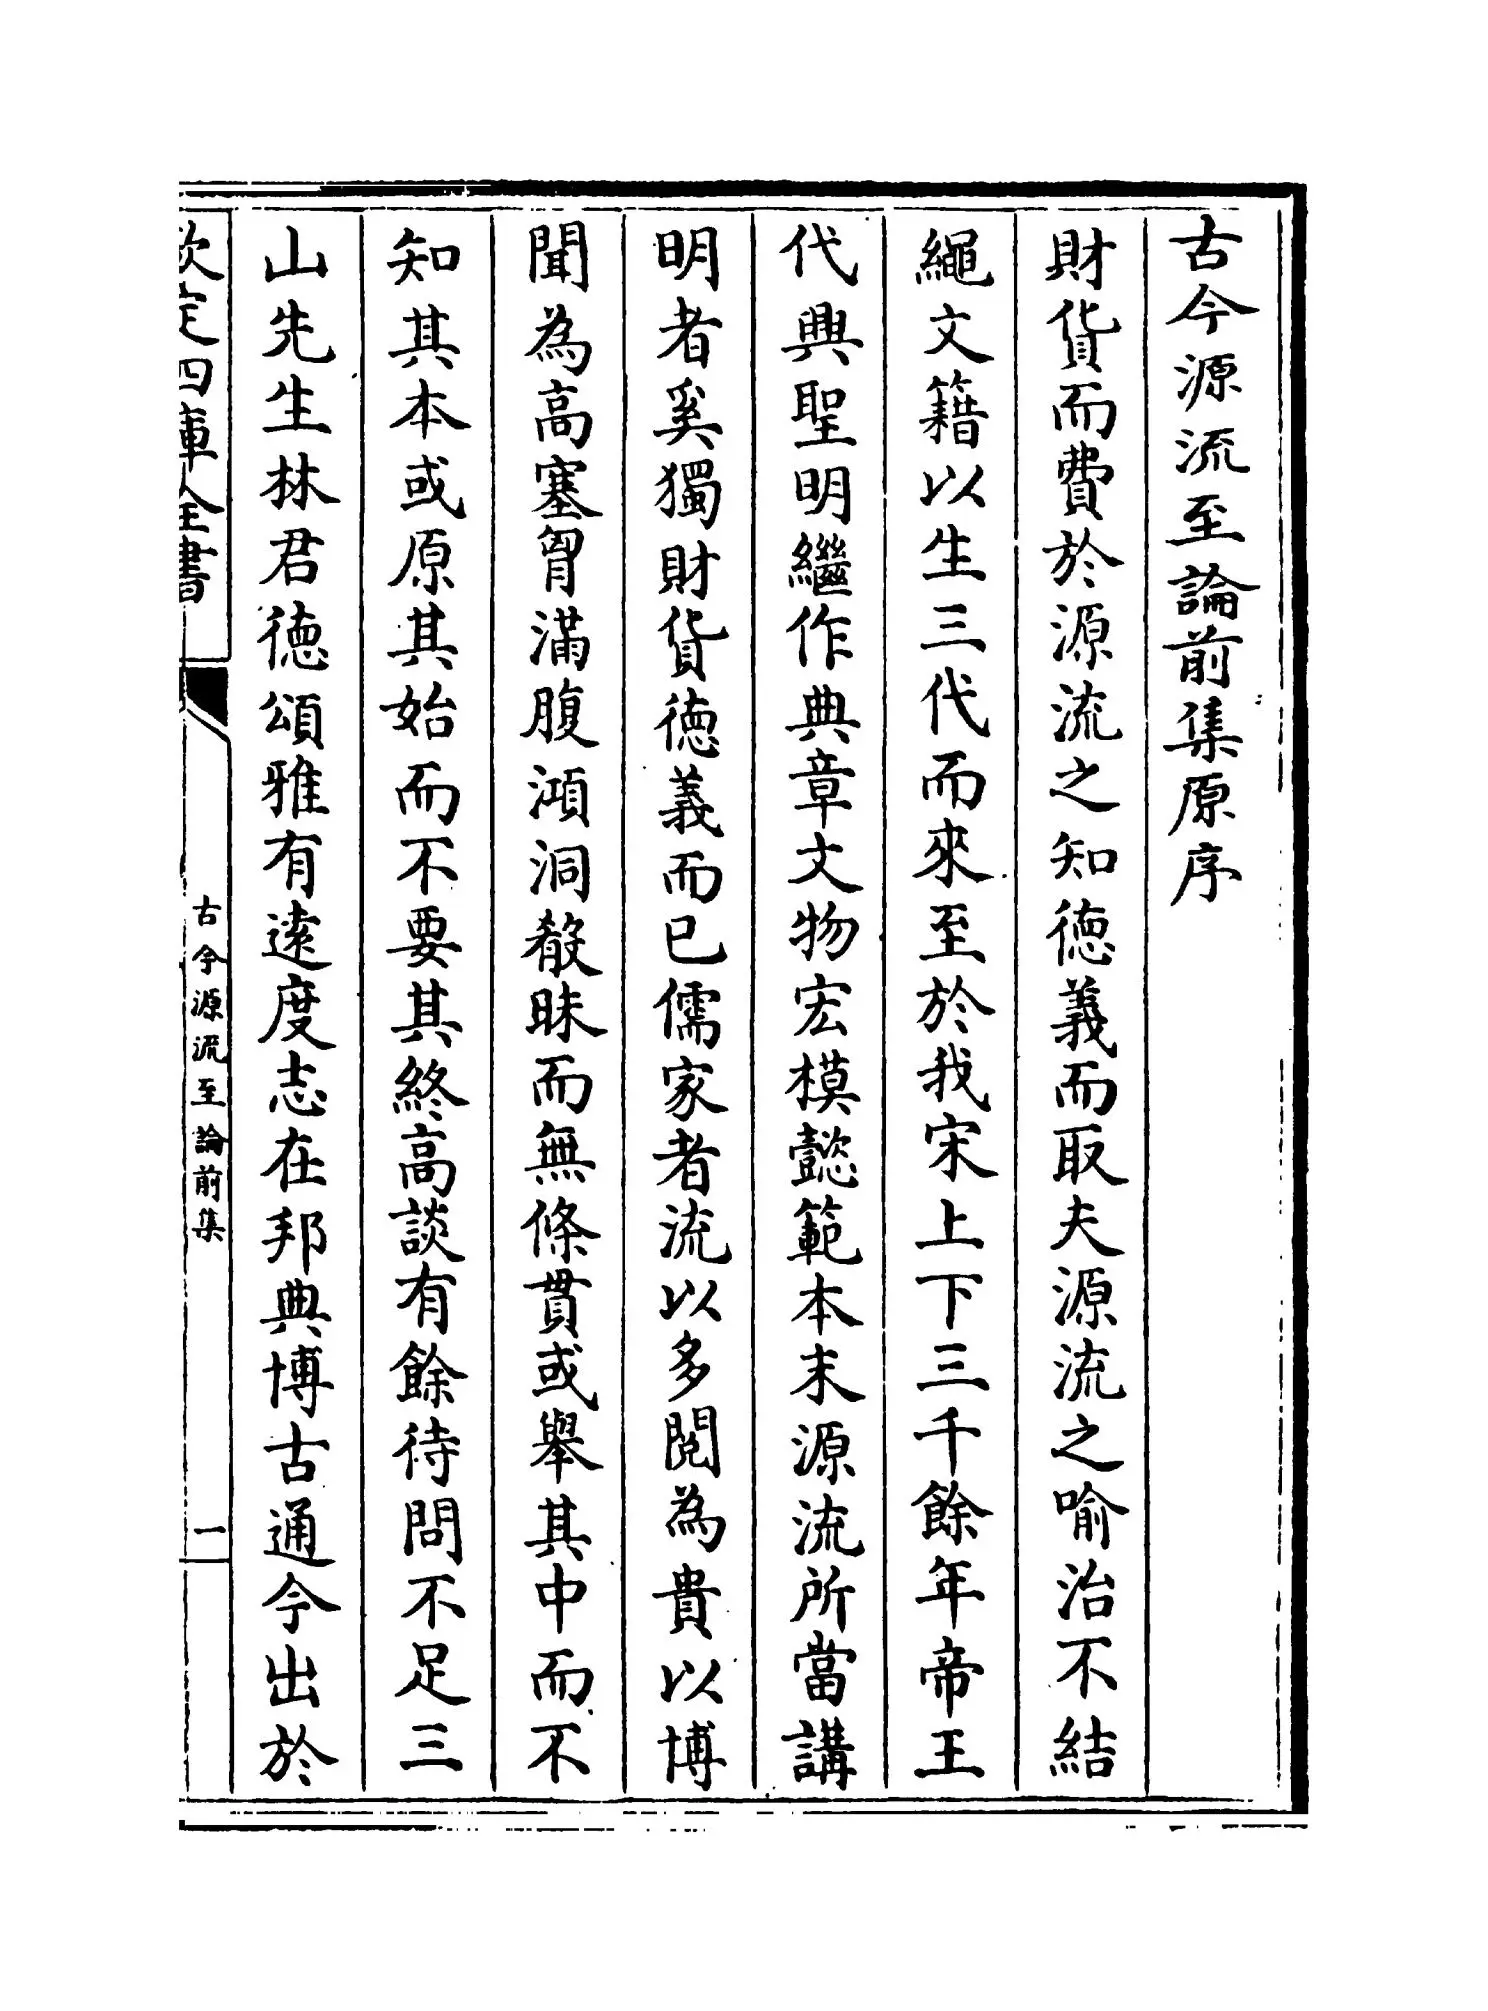 古今源流至論前集原序
財貨而費於源流之知德義而取夫源流之喻治不結
繩文籍以生三代而來至於我宋上下三千餘年帝王
代興聖明繼作典章文物宏模懿範本末源流所當講
明者奚獨財貨德義而已儒家者流以多閱為貴以博
聞為高塞胷滿腹澒洞殽昧而無條貫或舉其中而不
知其本或原其始而不要其終高談有餘待問不足三
山先生林君德頌雅有遠度志在邦典博古通今出於
欽定四庫全書
古今源流至論前集
一